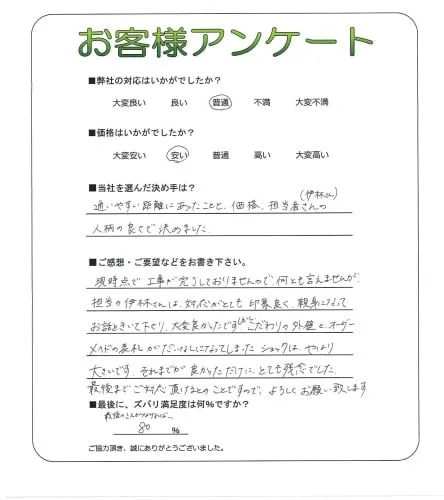 お客様アンケート
■弊社の対応はいかがでしたか?
大変良い 良い 普通 不満 大変不満
■価格はいかがでしたか?
大変安い 安い 普通 高い 大変高い
■当社を選んだ決め手は?
(伊林さん)
通いやすい距離にあったことと、価格、担当者さんの
人柄の良さで決めました
■ご感想・ご要望などをお書き下さい。
現時点で工事が完了しておりませんので、何とも言えませんが、
担当の伊林さんは、対応がとても印象良く、親身になって
お話をきいて下さり、大変良かったです しかし こだわりの外壁と、オーダー
メイドの表札がだいなしになってしまったショックは、やはり
大きいです。それまでが良かっただけに、とても残念でした。
最後までご対応頂けるとのことですので、よろしくお願い致します
■最後に、ズバリ満足度は何%ですか?
80 %
ご協力頂き、誠にありがとうございました。